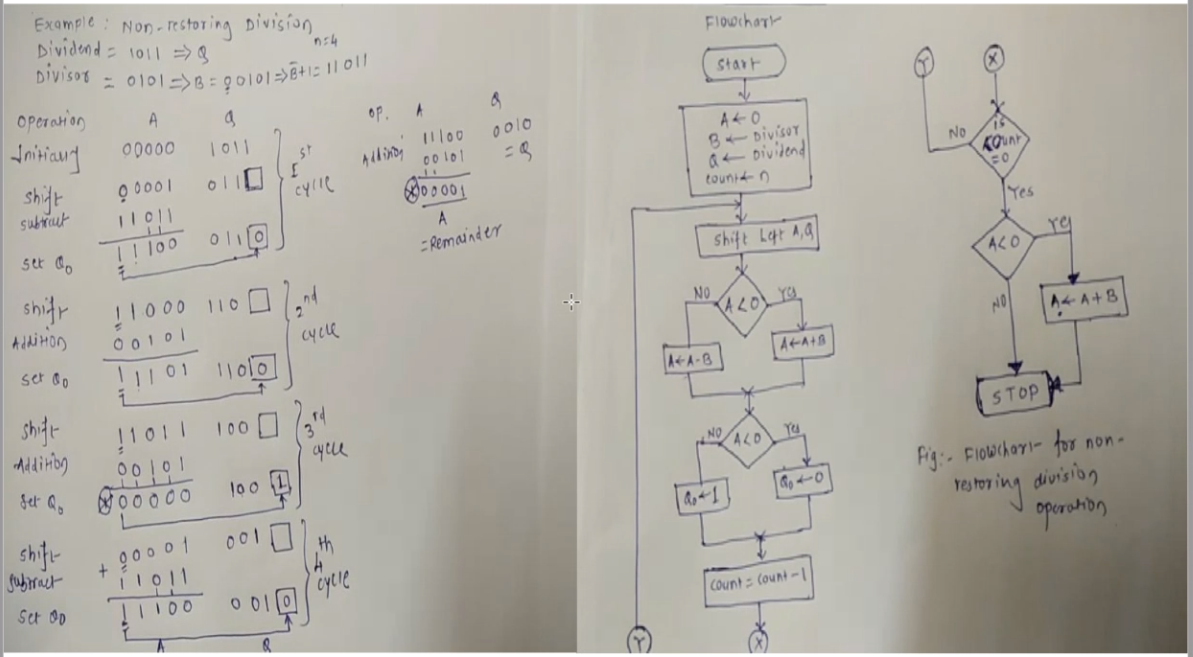 Example: Non-restoring Division
Dividend = 1011 ⇒ Q n=4
Divisor = 0101 ⇒ B = 00101 ⇒ B̅+1 = 11011
Operation A Q
Initially 00000 1011
Shift 00001 011□
Subtract 11011
Set Q₀ 11100 011[0]
Ist cycle
Shift 11000 110□
Addition 00101
Set Q₀ 11101 110[0]
2nd cycle
Shift 11011 100□
Addition 00101
Set Q₀ ⊗00000 100[1]
3rd cycle
Shift 00001 001□
Subtract + 11011
Set Q0 11100 001[0]
4th cycle
A Q
Op. A Q
11100 0010
Addition 00101 = Q
⊗00001
A
= Remainder
Flowchart
Start
A ← 0
B ← Divisor
Q ← Dividend
count ← n
Shift Left A,Q
A<0
NO
Yes
A←A-B
A←A+B
A<0
NO
Yes
Q₀←1
Q₀←0
Count = Count-1
Y
X
Y
X
is
count
=0
NO
Yes
A<0
Yes
NO
A←A+B
STOP
Fig:- Flowchart for non-
restoring division
operation